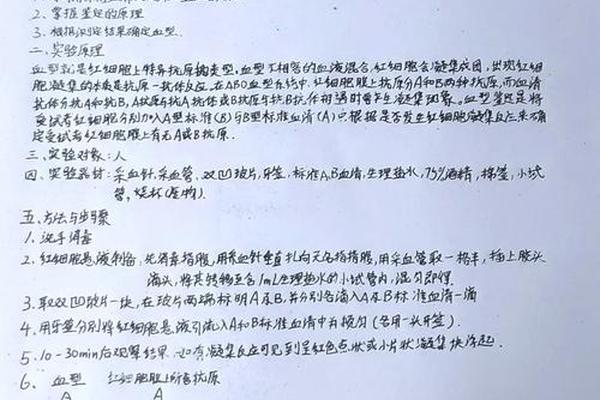 2. 掌握鉴定的原理
3. 根据判定结果确定血型.
二、实验原理
血型就是红细胞上特异抗原类型。血型不相容的血液混合,红细胞会凝集成团,出现红细
胞凝集的本质是抗原-抗体反应。在ABO血型系统中,红细胞膜上抗原分A和B两种抗原,而血清
抗体分抗A和抗B。A抗原与抗A抗体或B抗原与抗B抗体相遇时会产生凝集现象。血型鉴定是将
受试者红细胞分别加入A型标准(B)与B型标准血清(A)只根据是否发生红细胞凝集反应来确
定受试者红细胞膜上有无A或B抗原.
三、实验对象:人
四、实验器材:采血针,采血管、双凹玻片,牙签,标准A,B血清,生理盐水,75%酒精,棉签,小试
管,烧杯(废物).
五、方法与步骤
1. 洗手消毒
2. 红细胞悬液制备,先消毒指腹,用采血针垂直扎向无名指指腹,用采血管取一格半,插上胶头
滴头,将其转移至含1mL生理盐水的小试管内,混匀即得.
3. 取双凹玻片一块,在玻片两端标明A及B,并分别各滴入A及B标准血清一滴
4. 用牙签分别将红细胞悬液引流入A和B标准血清中并搅匀(各用一头牙签).
5. 10-30min后观察结果.如有凝集反应可见到呈红色点状或小片状凝集块浮起.
6. 血型 红细胞膜上所含抗原
A A